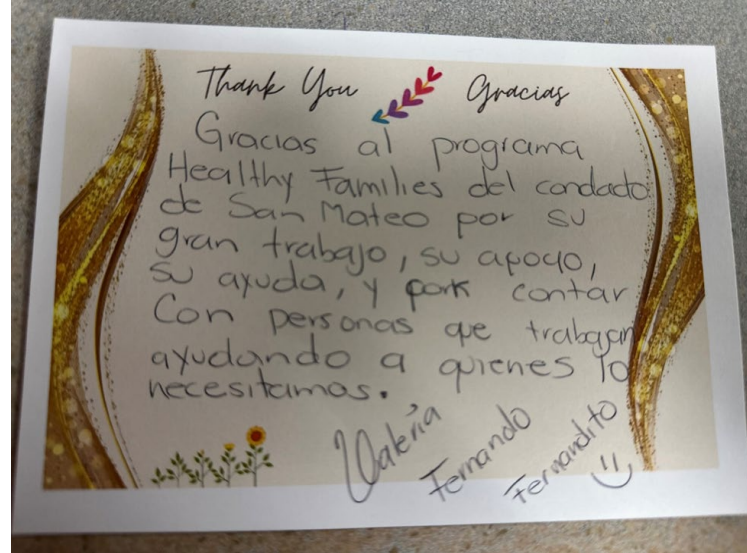 Thank You Gracias
Gracias al programa
Healthy Families del condado
de San Mateo por su
gran trabajo, su apoyo,
su ayuda, y por contar
Con personas que trabajan
ayudando a quienes lo
necesitamos.
Valeria
Fernando
Fernandito